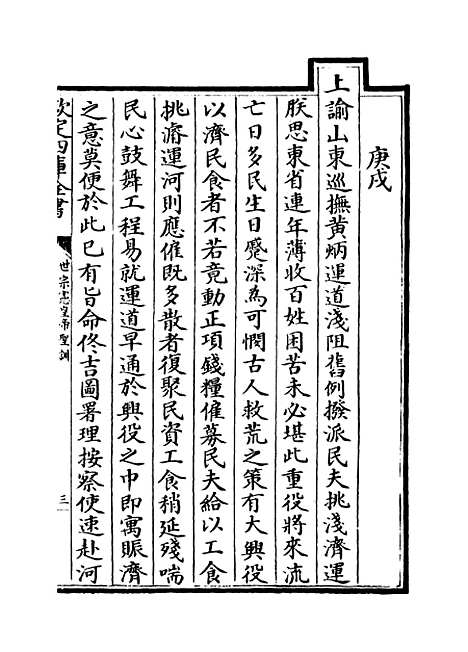 庚戌
上諭山東巡撫黃炳運道淺阻舊例撥派民夫挑淺濟運
朕思東省連年薄收百姓困苦未必堪此重役將來流
亡日多民生日蹙深為可憫古人救荒之策有大興役
以濟民食者不若竟動正項錢糧僱募民夫給以工食
挑濬運河則應僱既多散者復聚民資工食稍延殘喘
民心鼓舞工程易就運道早通於興役之中即寓賑濟
之意莫便於此已有旨命佟吉圖署理按察使速赴河
欽定四庫全書
世宗憲皇帝聖訓
三